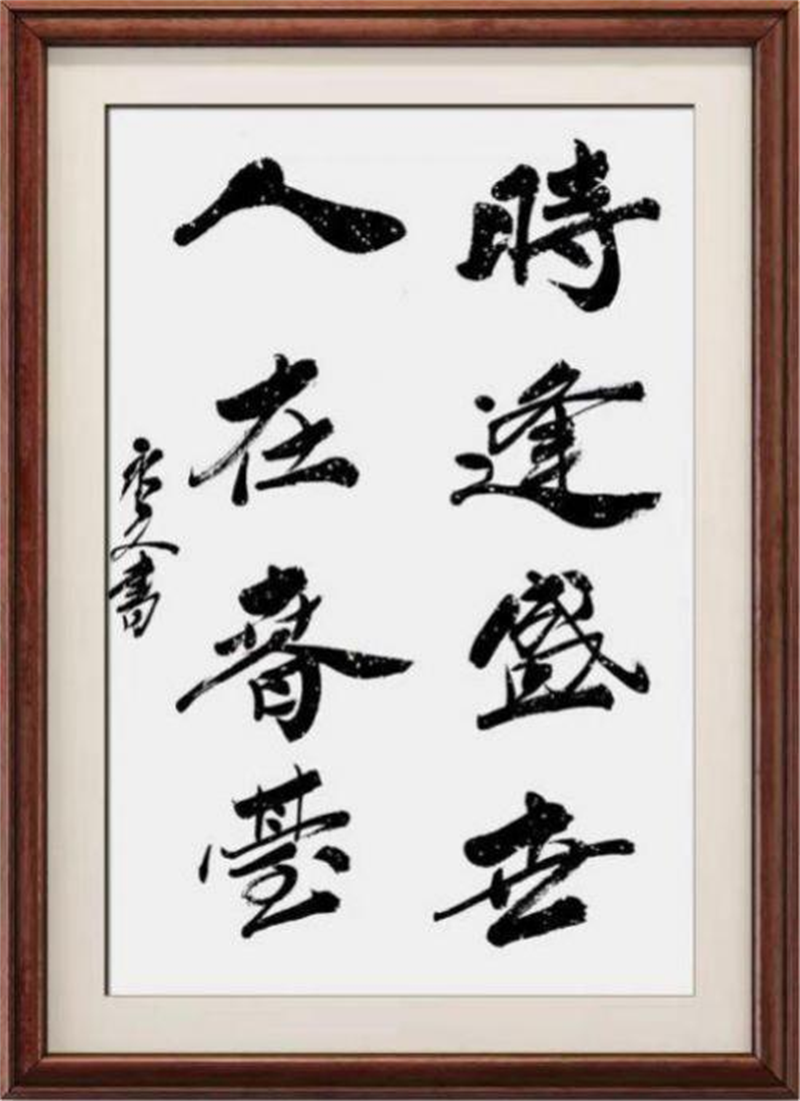 時逢盛世
人在春臺
永文書